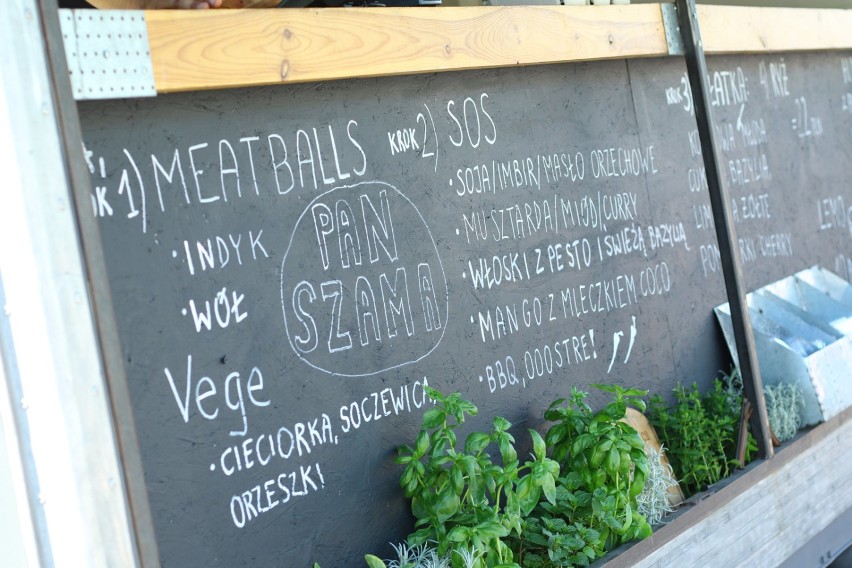 KROK 1) MEATBALLS
· INDYK
· WÓŁ
PAN
SZAMA
Vege
· CIECIORKA, SOCZEWICA,
ORZESZKI!
KROK 2) SOS
· SOJA/IMBIR/MASŁO ORZECHOWE
· MUSZTARDA/MIÓD/CURRY
· WŁOSKI Z PESTO I ŚWIEŻĄ BAZYLIĄ
· MANGO Z MLECZKIEM COCO
· BBQ, OOOSTRE!
KROK 3) 
BAZYLIA
ŻÓŁTE
CHERRY